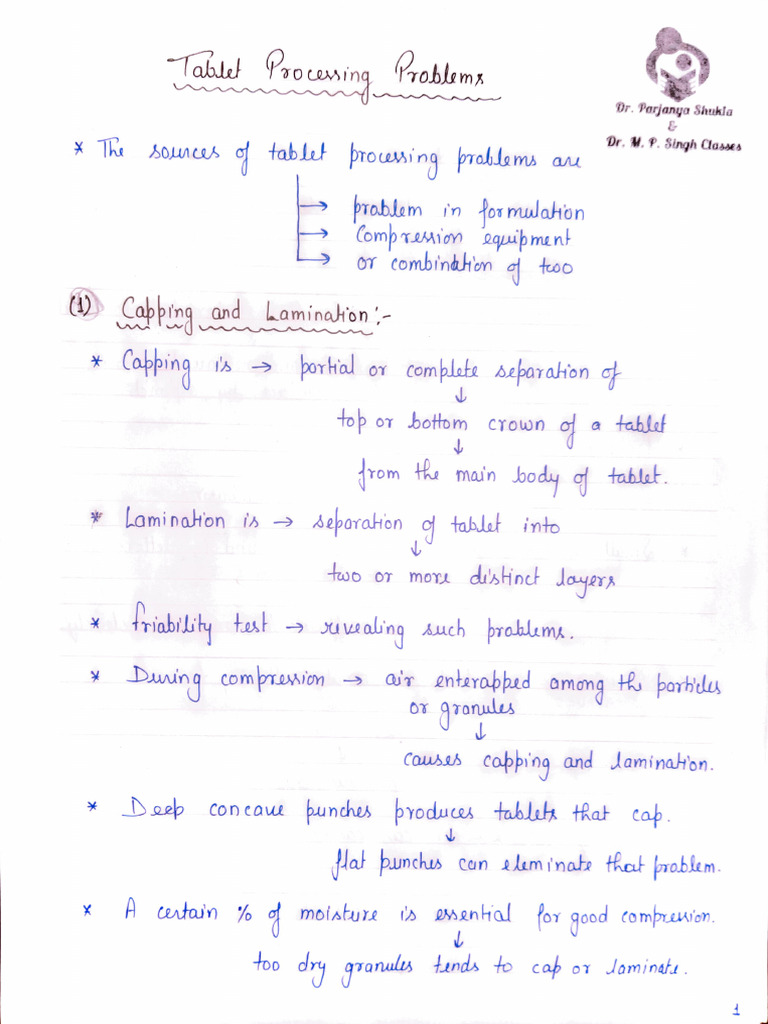 Tablet Processing Problems
Dr. Parjanya Shukla
&
Dr. M. P. Singh Classes
* The sources of tablet processing problems are
→ problem in formulation
→ Compression equipment
→ or combination of two
(1) Capping and Lamination:-
* Capping is → partial or complete separation of
↓
top or bottom crown of a tablet
↓
from the main body of tablet.
* Lamination is → separation of tablet into
↓
two or more distinct layers
* friability test → revealing such problems.
* During compression → air enterapped among the particles
or granules
↓
causes capping and lamination.
* Deep concave punches produces tablets that cap.
↓
flat punches can eleminate that problem.
* A certain % of moisture is essential for good compression.
↓
too dry granules tends to cap or laminate.
1